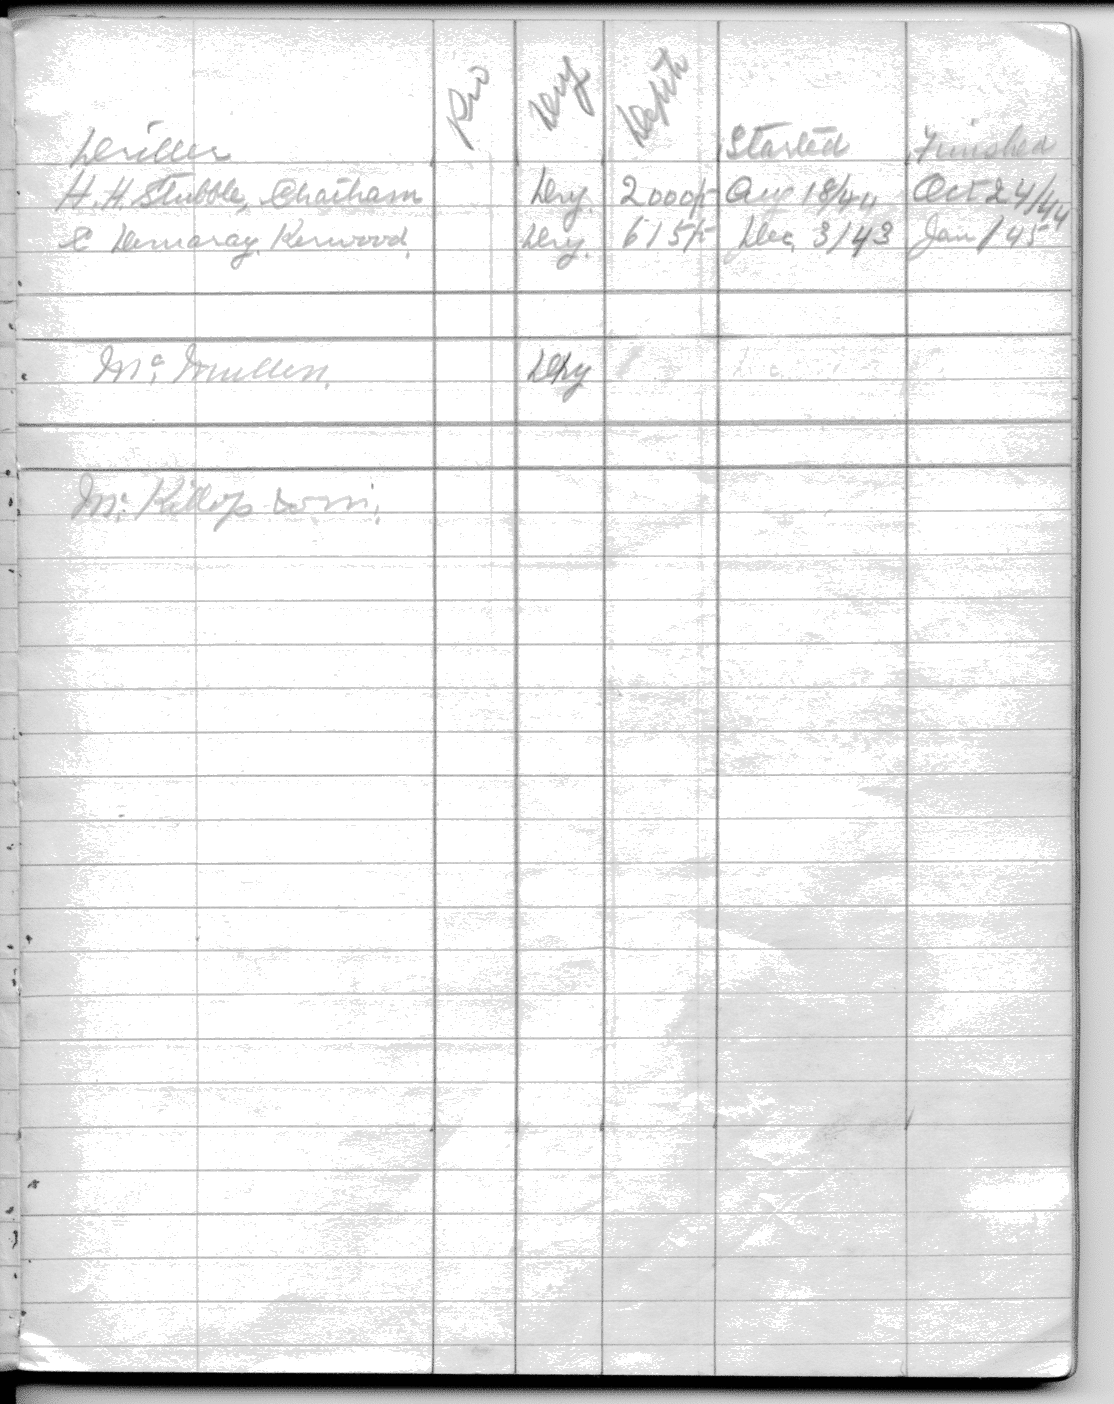 Driller Pro Dry Depth Started Finished
H. H. Stubble, Chatham Dry. 2000ft Aug 18/44 Oct 24/44
C Demaray. Kerwood. Dry. 615ft Dec. 3/43 Jan 1/45
Mc. Mullen. Dry
Mc. Killop